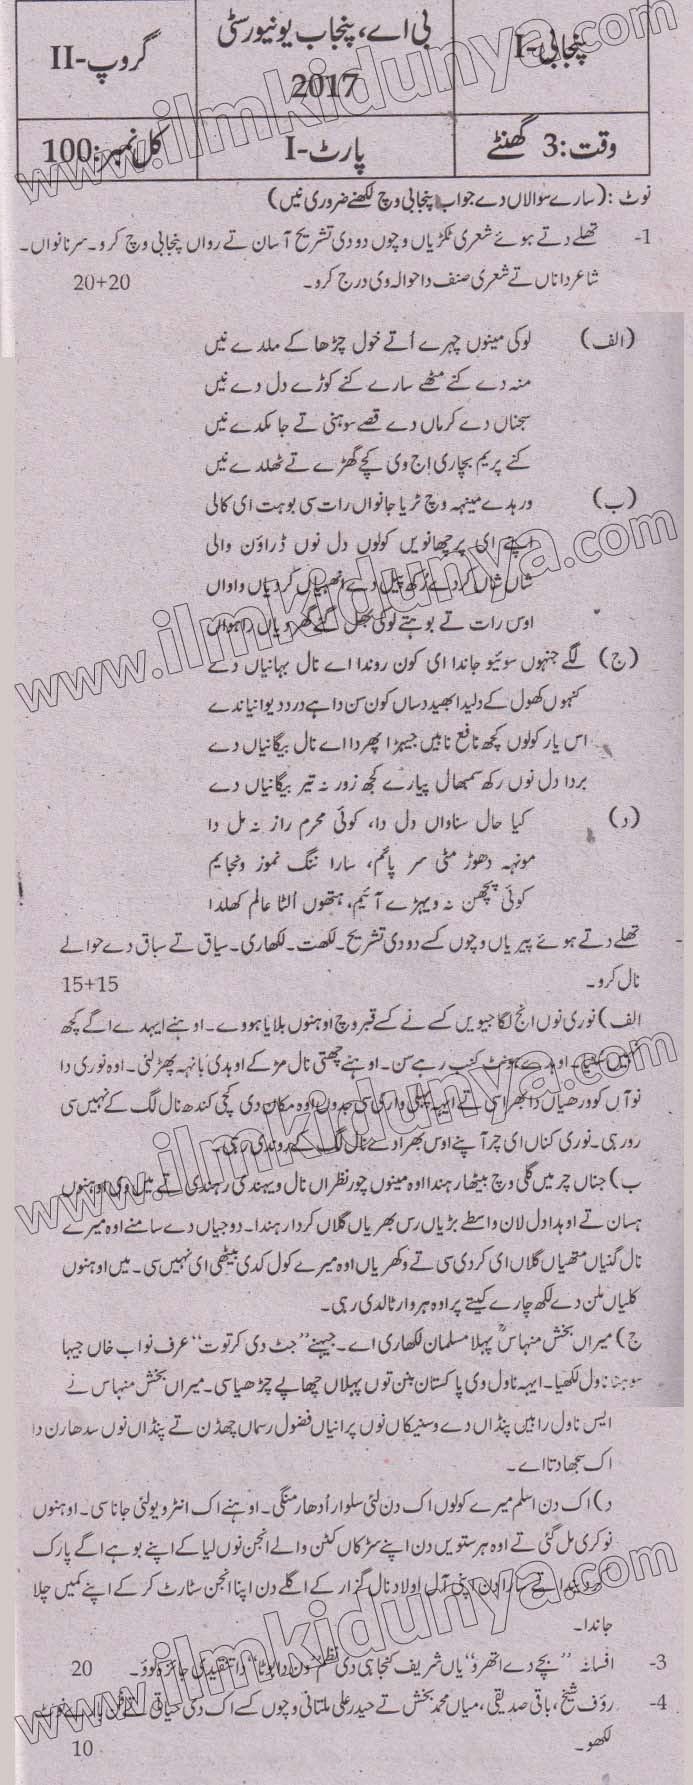 پنجابی-I
بی اے، پنجاب یونیورسٹی
2017
گروپ-II
وقت: 3 گھنٹے
پارٹ-I
کل نمبر: 100
نوٹ: (سارے سوالاں دے جواب پنجابی وچ لکھنے ضروری نیں)
1- تھلے دتے ہوئے شعری ٹکڑیاں وچوں دو دی تشریح آسان تے رواں پنجابی وچ کرو۔ سرنانواں۔
شاعر دا ناں تے شعری صنف دا حوالہ وی درج کرو۔ 20+20
(الف) لوکی مینوں چہرے اُتے خول چڑھا کے ملدے نیں
منہ دے کنے مٹھے سارے کنے کوڑے دل دے نیں
سجناں دے کرماں دے قصے سوہنی تے جا مکدے نیں
کنے پریم پجاری اج وی کچے گھڑے تے ٹھلدے نیں
(ب) ورہدے مینہہ وچ ٹریا جانواں رات سی بوہت ای کالی
اپنے ای پرچھانویں کولوں دل نوں ڈراؤن والی
شاں شاں کردے رُکھ پپل دے انھیاں کردیاں واواں
اوس رات تے بوہتے لوکی بھل گئے گھر دیاں راہواں
(ج) لگے جنہوں سوئیو جاندا ای کون روندا اے نال بہانیاں دے
کنہوں کھول کے دلیدا بھید دساں کون سن دا ہے درد دیوانیاندے
اس یار کولوں کجھ نافع ناہیں جیہڑا پھردا اے نال بیگانیاں دے
بردا دل نوں رکھ سمبھال پیارے کجھ زور نہ تیر بیگانیاں دے
(د) کیا حال سناواں دل دا، کوئی محرم راز نہ مل دا
مونہہ دھوڑ مٹی سر پائم، سارا ننگ نموز ونجایم
کوئی پچھن نہ ویہڑے آئیم، ہتھوں اُلٹا عالم کھلدا
- تھلے دتے ہوئے پیریاں وچوں کسے دو دی تشریح۔ لکھت۔ لکھاری۔ سیاق تے سباق دے حوالے
نال کرو۔ 15+15
الف) نوری نوں انج لگا جیویں کسے نے کسے قبر وچ اوہنوں بلایا ہووے۔ اوہنے ایہدے اگے کجھ
نہیں سنیا۔ اوہدے ہونٹ کنب رہے سن۔ اوہنے چھتی نال مڑ کے اوہدی بانہہ پھڑ لئی۔ اوہ نوری دا
نوآں کو ورھیاں دا بھرا سی تے ایہہ پہلی واری سی جدوں اوہ مکان دی کچی کندھ نال لگ کے نہیں سی
رو رہی۔ نوری کناں ای چر آپنے اوس بھرا دے نال لگ کے روندی رہی۔
ب) جناں چر میں گلی وچ بیٹھا رہندا اوہ مینوں چور نظراں نال ویہندی رہندی تے میں وی اوہنوں
ہسان تے اوہدا دل لان واسطے بڑیاں رس بھریاں گلاں کردا رہندا۔ دوجیاں دے سامنے اوہ میرے
نال گنیاں متھیاں گلاں ای کردی سی تے وکھریاں اوہ میرے کول کدی بیٹھی ای نہیں سی۔ میں اوہنوں
کلیاں ملن دے لکھ چارے کیتے پر اوہ ہر وار ٹالدی رہی۔
ج) میراں بخش منہاس پہلا مسلمان لکھاری اے۔ جیہنے "جٹ دی کرتوت" عرف نواب خاں جیہا
سوہنا ناول لکھیا۔ ایہہ ناول وی پاکستان بنن توں پہلاں چھاپے چڑھیا سی۔ میراں بخش منہاس نے
ایس ناول راہیں پنڈاں دے وسنیکاں نوں پرانیاں فضول رسماں چھڈن تے پنڈاں نوں سدھارن دا
اک سجھا دتا اے۔
د) اک دن اسلم میرے کولوں اک دن لئی سلوار اُدھار منگی۔ اوہنے اک انٹرویو لئی جانا سی۔ اوہنوں
نوکری مل گئی تے اوہ ہر ستویں دن اپنے سڑکاں کٹن والے انجن نوں لیا کے اپنے بوہے اگے پارک
کردیندا تے سارا دن اپنی آل اولاد نال گزار کے اگلے دن اپنا انجن سٹارٹ کر کے اپنے کمیں چلا
جاندا۔
3- افسانہ "بچے دے اتھرو" یاں شریف کنجاہی دی نظم "ون دا بوٹا" دا تنقیدی جائزہ لوو۔ 20
4- رؤف شیخ، باقی صدیقی، میاں محمد بخش تے حیدر علی ملتانی وچوں کسے اک دی حیاتی تے فن بارے نوٹ
لکھو۔ 10
www.ilmkidunya.com
www.ilmkidunya.com
www.ilmkidunya.com
www.ilmkidunya.com